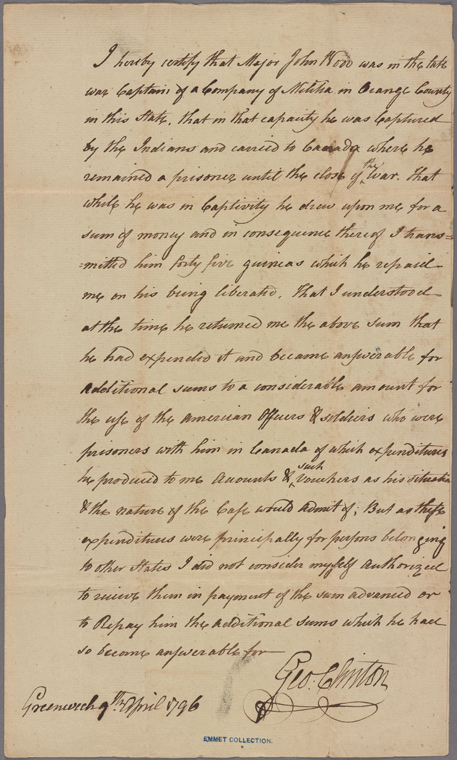 I hereby certify that Major John Wood was in the late
war Captain of a Company of Militia in Orange County
in this State, that in that capacity he was Captured
by the Indians and carried to Canada where he
remained a prisoner until the close of the War. that
while he was in Captivity he drew upon me for a
sum of money and in consequence thereof I trans=
=mitted him forty five guineas which he repaid
me on his being liberated, That I understood
at the time he returned me the above sum that
he had expended it and became answerable for
Additional sums to a considerable amount for
the use of the American Officers & soldiers who were
prisoners with him in Canada of which expenditures
he produced to me Accounts & such Vouchers as his situation
& the nature of the Case would admit of; But as these
expenditures were principally for persons belonging
to other States I did not consider myself Authorized
to receive them in payment of the sum advanced or
to Repay him the Additional sums which he had
so become answerable for
Geo. Clinton
Greenwich 9th April 1796
EMMET COLLECTION.